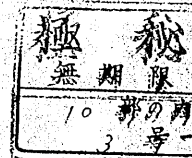 極秘
無期限
10部の内
3号